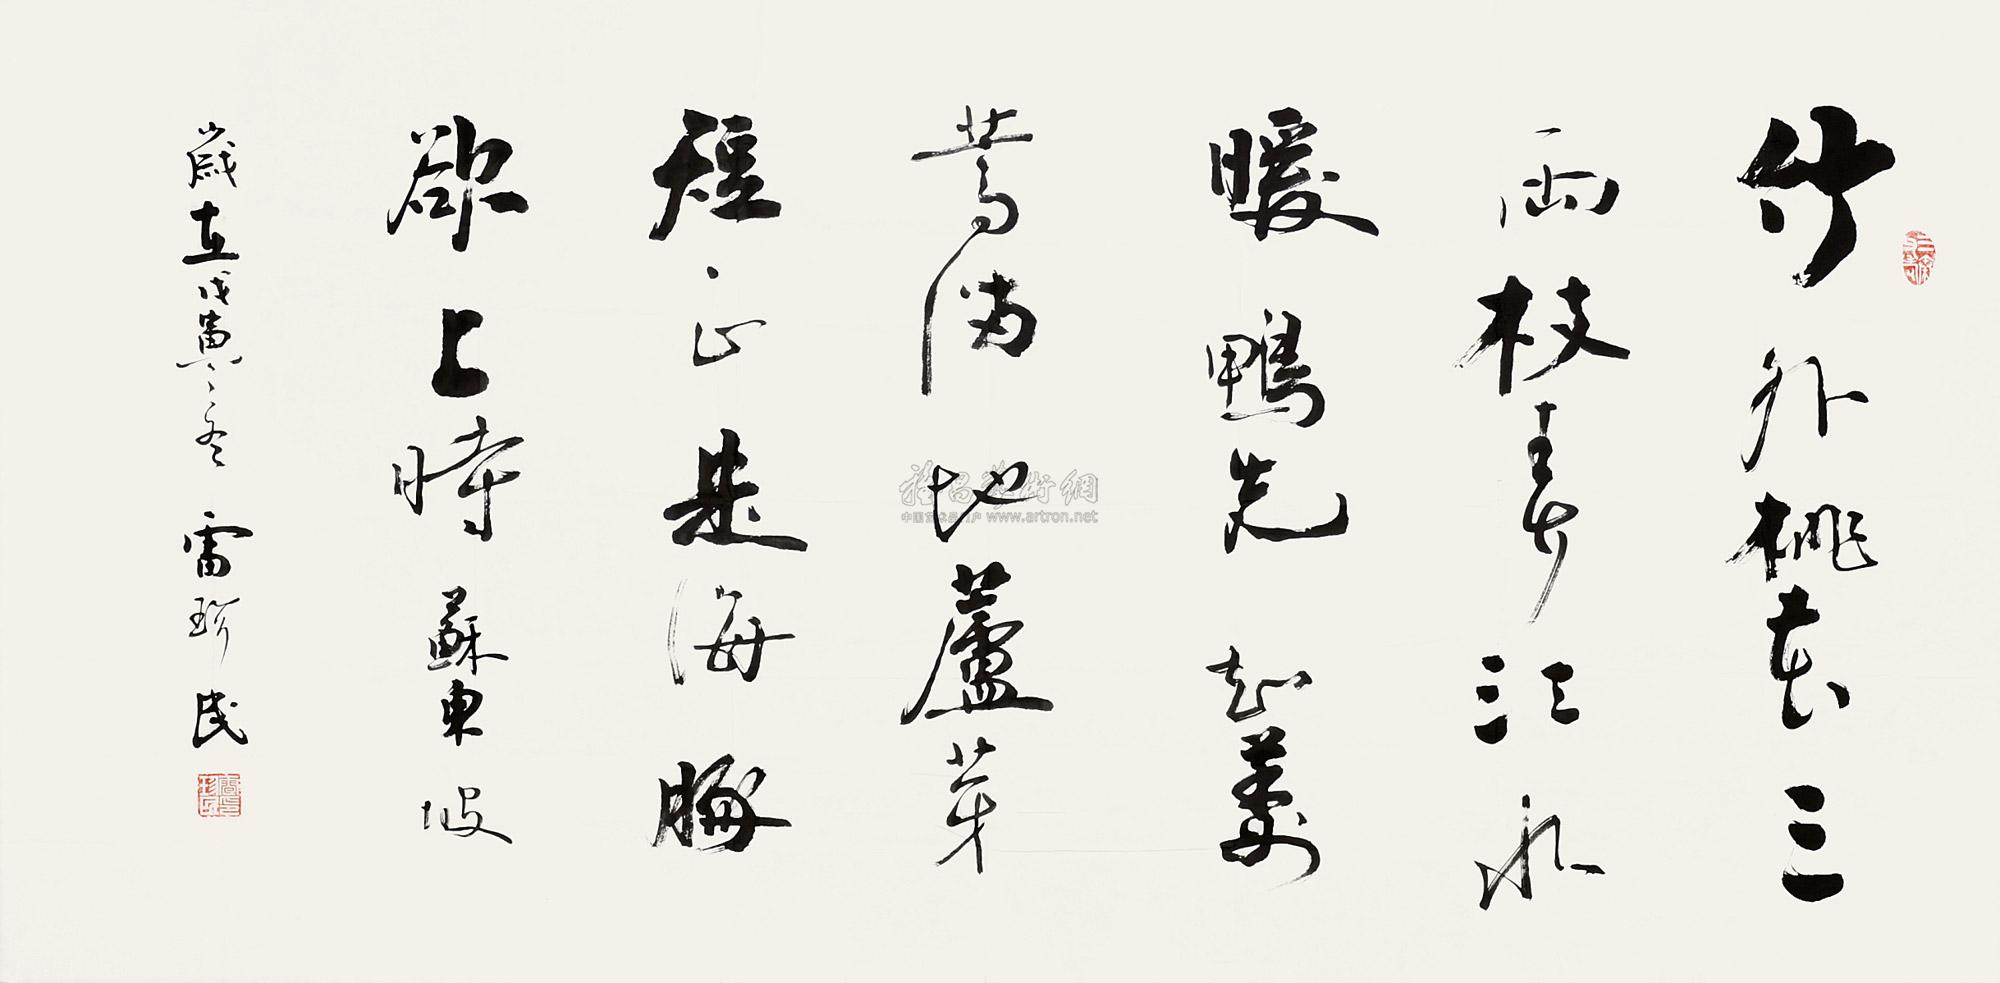 竹外桃花三
兩枝春江水
暖鴨先知蔞
蒿滿地蘆芽
短正是海豚
欲上時 蘇東坡
歲在戊寅之冬 雷珍民
雅昌藝術網
中国艺术品门户 www.artron.net